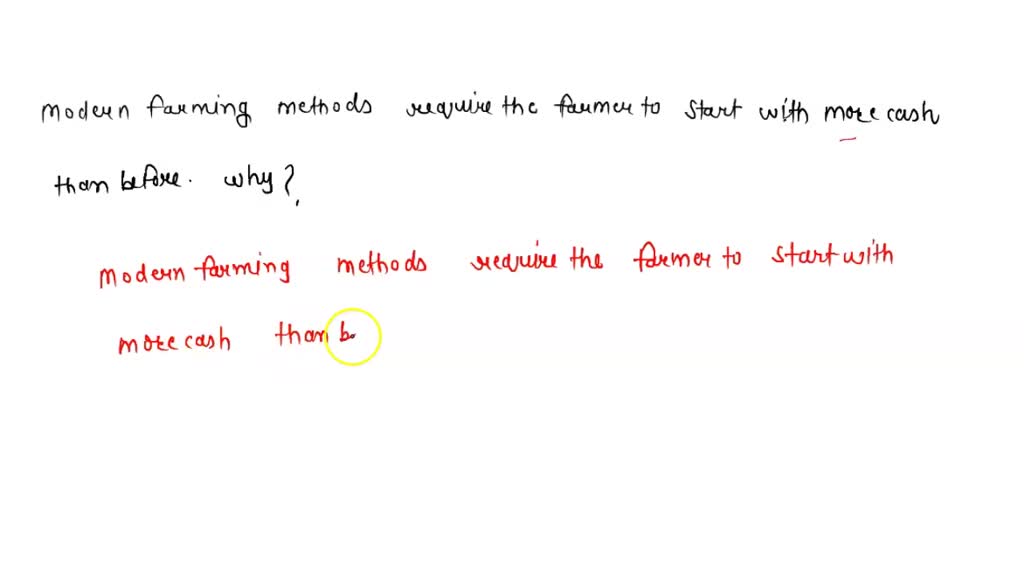 Modern farming methods require the farmer to start with more cash
than before. why?
Modern farming methods require the farmer to start with
more cash than b